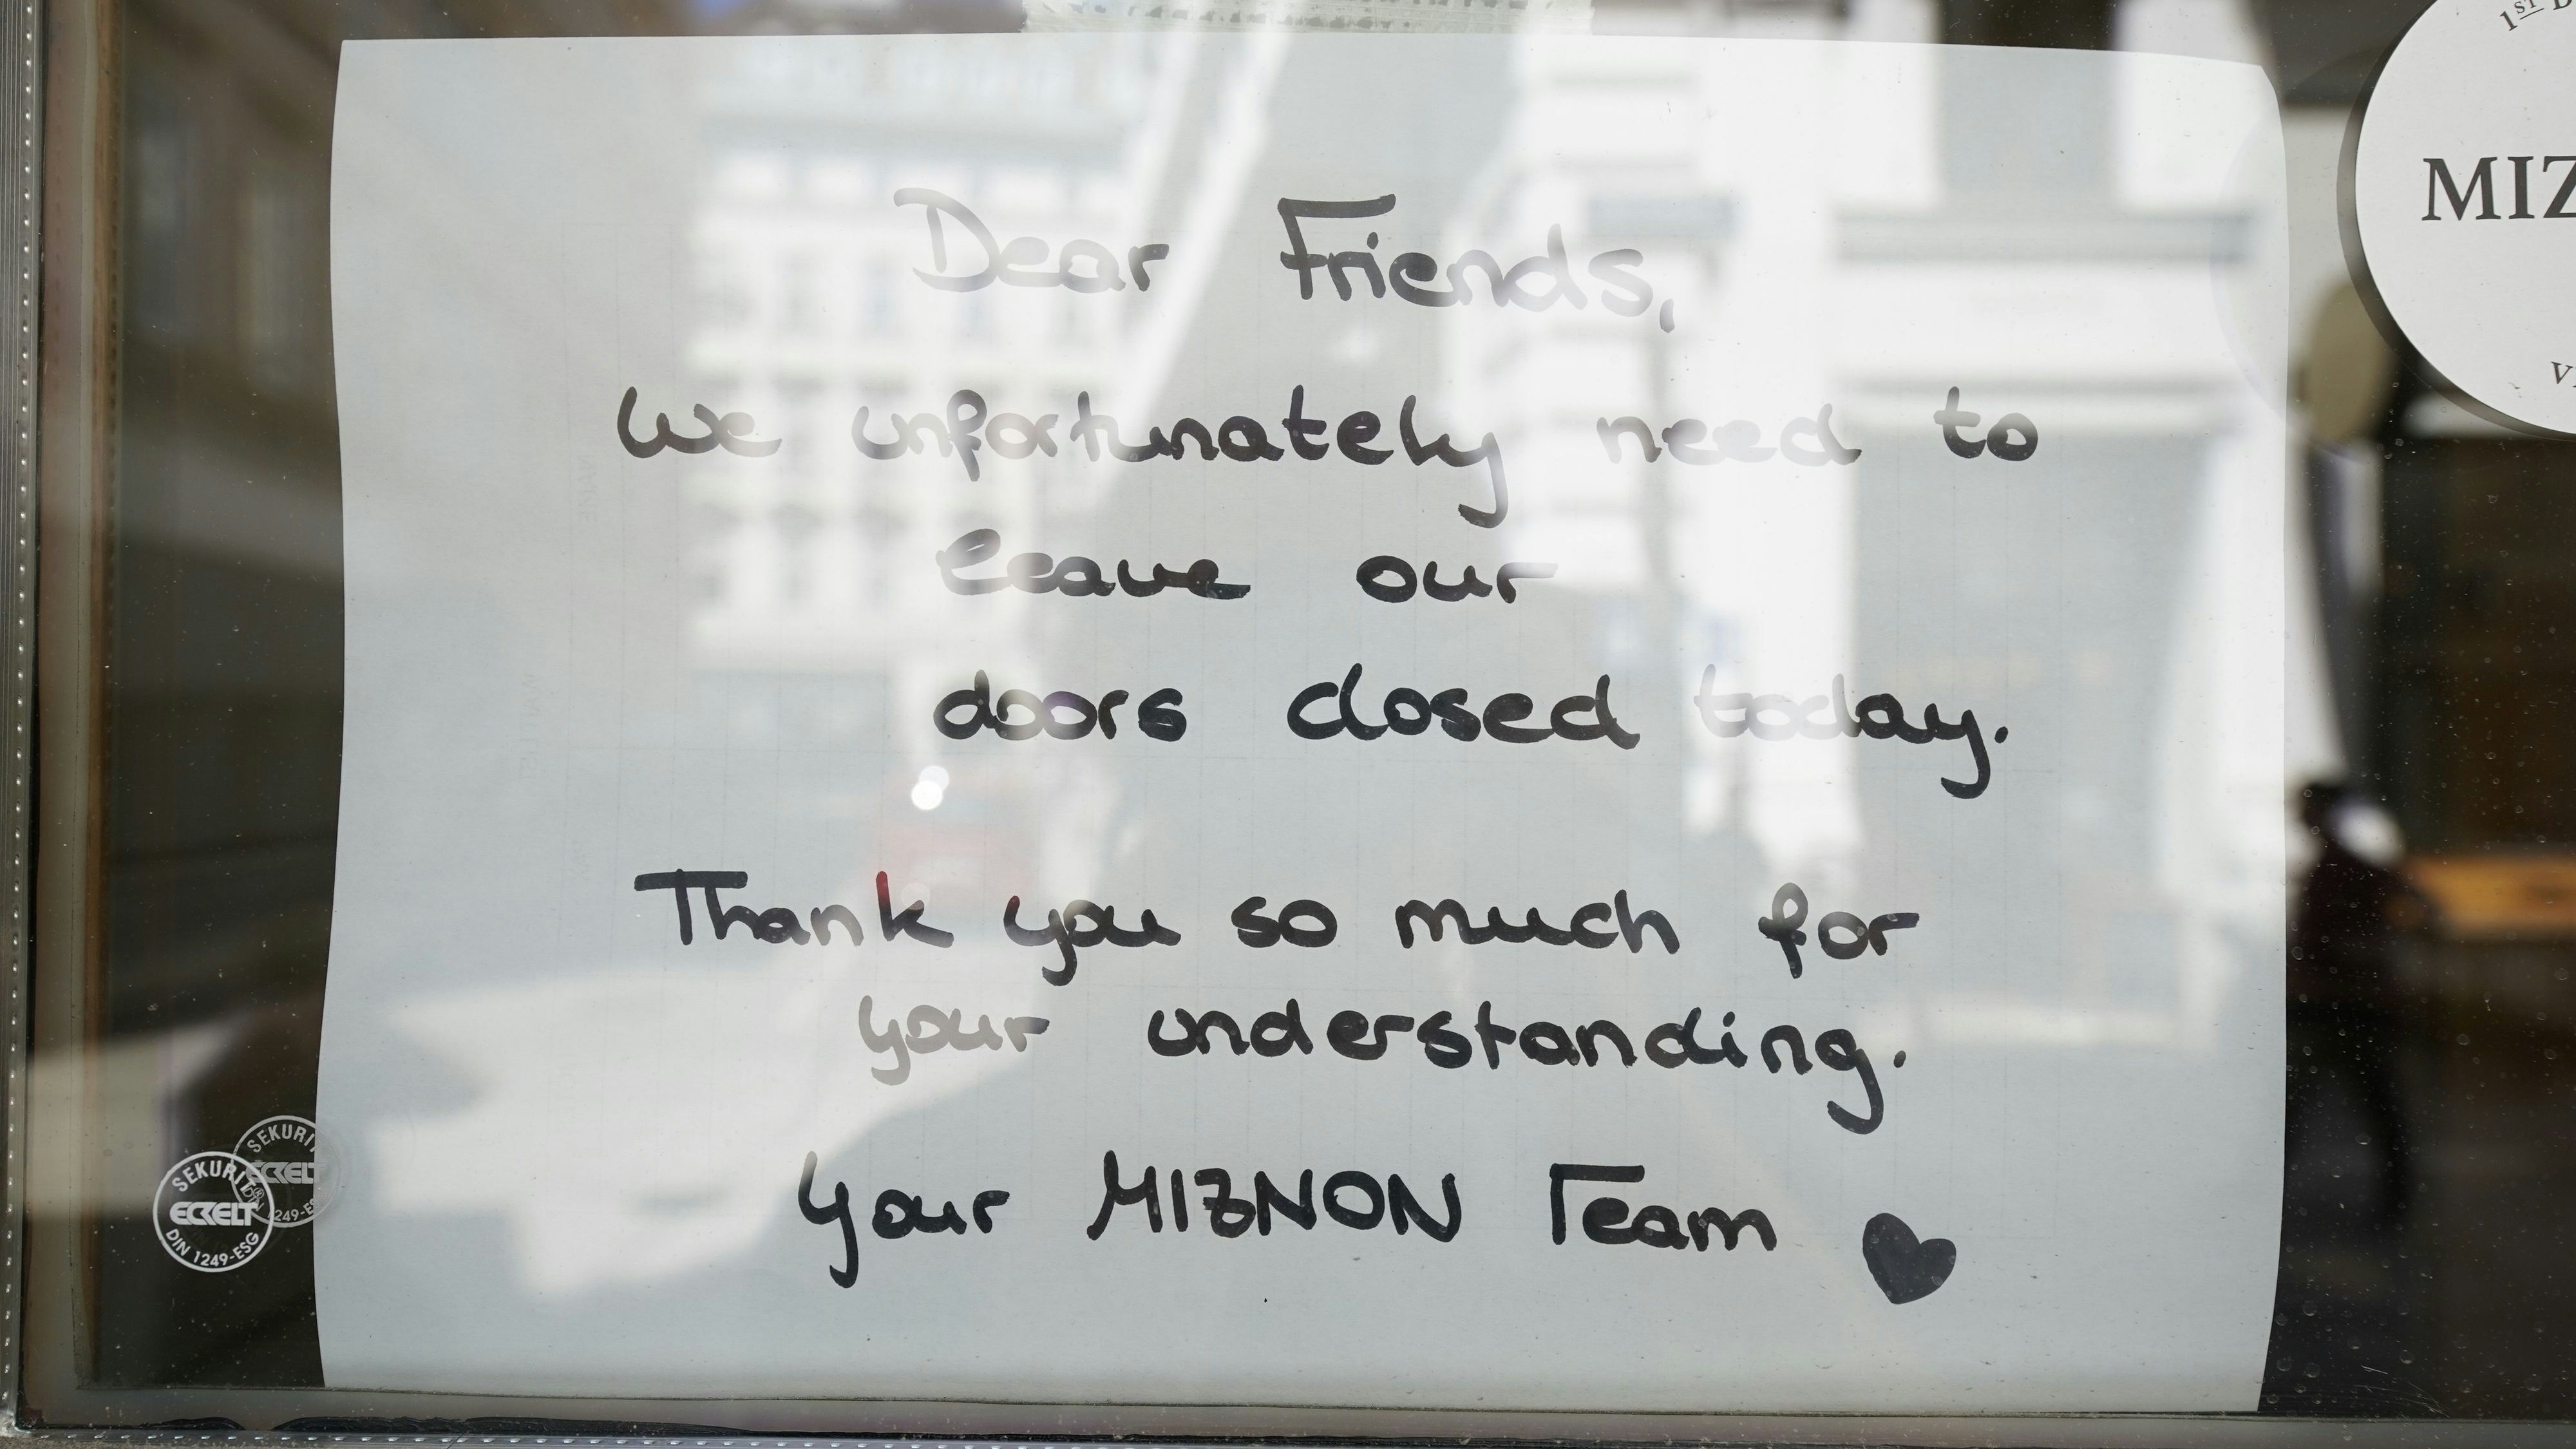 Dear Friends,
We unfortunately need to
leave our
doors closed today.
Thank you so much for
your understanding.
Your MIZNON Team ♥
1ST
MIZ
SEKURIT
ECKELT
DIN 1249-ESG
SEKURIT
ECKELT